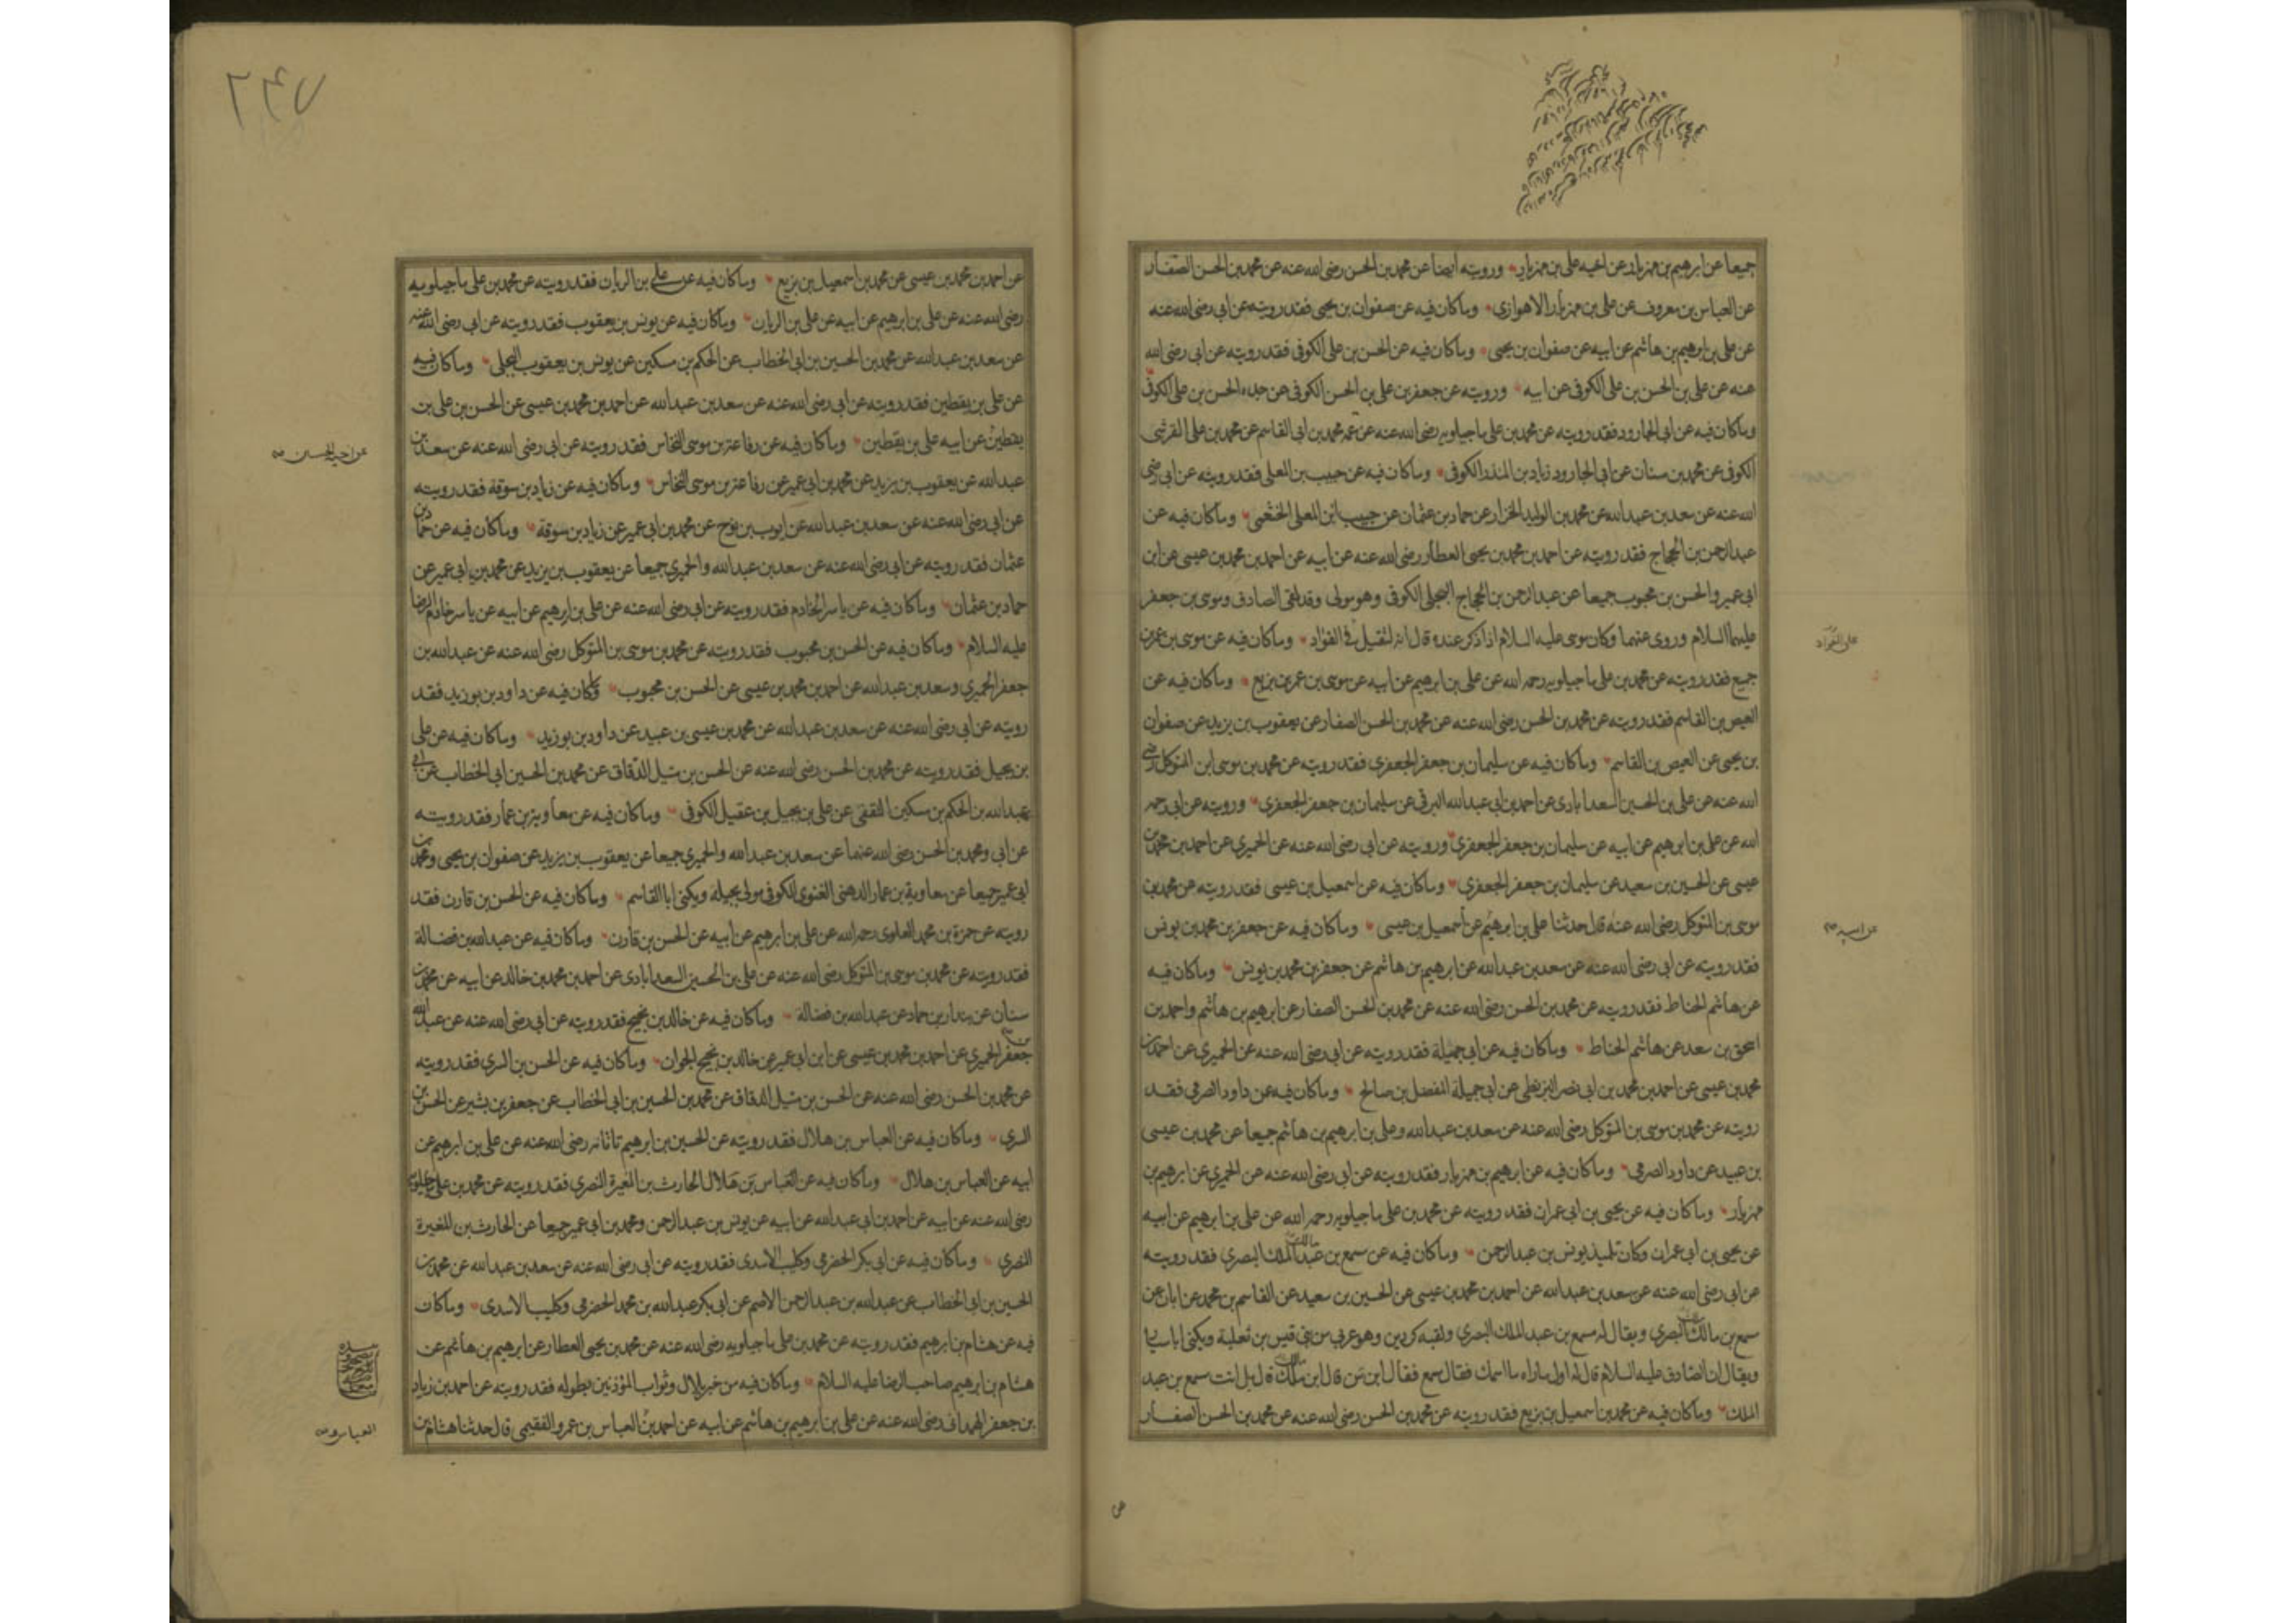 جميعا عن ابرهيم بن مهزيار عن اخيه على بن مهزيار ورويته ايضا عن محمد بن الحسن رضى الله عنه عن محمد بن الحسن الصفار
عن العباس بن معروف عن على بن مهزيار الاهوازى وماكان فيه عن صفوان بن يحيى فقد رويته عن ابى رضى الله عنه
عن على بن ابرهيم بن هاشم عن ابيه عن صفوان بن يحيى وماكان فيه عن الحسن بن على الكوفى فقد رويته عن ابى رضى الله
عنه عن على بن الحسن بن على الكوفى عن ابيه ورويته عن جعفر بن على بن الحسن الكوفى عن جده الحسن بن على الكوفى
وماكان فيه عن ابى الجارود فقد رويته عن محمد بن على ماجيلويه رضى الله عنه عن عمه محمد بن ابى القاسم عن محمد بن على القرشى
الكوفى عن محمد بن سنان عن ابى الجارود زياد بن المنذر الكوفى وماكان فيه عن حبيب بن المعلى فقد رويته عن ابى رضى
الله عنه عن سعد بن عبدالله عن محمد بن الوليد الخزاز عن حماد بن عثمان عن حبيب ابن المعلى الخثعمى وماكان فيه عن
عبدالرحمن بن الحجاج فقد رويته عن احمد بن محمد بن يحيى العطار رضى الله عنه عن ابيه عن احمد بن محمد بن عيسى عن ابن
ابى عمير والحسن بن محبوب جميعا عن عبدالرحمن بن الحجاج البجلى الكوفى وهو مولى وقد لقى الصادق وموسى بن جعفر
عليهما السلام وروى عنهما وكان موسى عليه السلام اذا ذكر عنده قال انه لثقيل فى الفؤاد وماكان فيه عن موسى بن عمر بن
بزيع فقد رويته عن محمد بن على ماجيلويه رحمه الله عن على بن ابرهيم عن ابيه عن موسى بن عمر بن بزيع وماكان فيه عن
العيص بن القاسم فقد رويته عن محمد بن الحسن رضى الله عنه عن محمد بن الحسن الصفار عن يعقوب بن يزيد عن صفوان
بن يحيى عن العيص بن القاسم وماكان فيه عن سليمان بن جعفر الجعفرى فقد رويته عن محمد بن موسى ابن المتوكل رضى
الله عنه عن على بن الحسين السعدابادى عن احمد بن ابى عبدالله البرقى عن سليمان بن جعفر الجعفرى ورويته عن ابى رحمه
الله عن على بن ابرهيم عن ابيه عن سليمان بن جعفر الجعفرى ورويته عن ابى رضى الله عنه عن الحميرى عن احمد بن محمد بن
عيسى عن الحسين بن سعيد عن سليمان بن جعفر الجعفرى وماكان فيه عن اسمعيل بن عيسى فقد رويته عن محمد بن
موسى بن المتوكل رضى الله عنه قال حدثنا على بن ابرهيم عن اسمعيل بن عيسى وماكان فيه عن جعفر بن محمد بن يونس
فقد رويته عن ابى رضى الله عنه عن سعد بن عبدالله عن ابرهيم بن هاشم عن جعفر بن محمد بن يونس وماكان فيه
عن هاشم الحناط فقد رويته عن محمد بن الحسن رضى الله عنه عن محمد بن الحسن الصفار عن ابرهيم بن هاشم واحمد بن
اسحق بن سعد عن هاشم الحناط وماكان فيه عن ابى جميلة فقد رويته عن ابى رضى الله عنه عن الحميرى عن احمد بن
محمد بن عيسى عن احمد بن محمد بن ابى نصر البزنطى عن ابى جميلة المفضل بن صالح وماكان فيه عن داود الصرمى فقد
رويته عن محمد بن موسى بن المتوكل رضى الله عنه عن سعد بن عبدالله وعلى بن ابرهيم بن هاشم جميعا عن محمد بن عيسى
بن عبيد عن داود الصرمى وماكان فيه عن ابرهيم بن مهزيار فقد رويته عن ابى رضى الله عنه عن الحميرى عن ابرهيم بن
مهزيار وماكان فيه عن يحيى بن ابى عمران فقد رويته عن محمد بن على ماجيلويه رحمه الله عن على بن ابرهيم عن ابيه
عن يحيى بن ابى عمران وكان تلميذ يونس بن عبدالرحمن وماكان فيه عن مسمع بن عبدالملك البصرى فقد رويته
عن ابى رضى الله عنه عن سعد بن عبدالله عن احمد بن محمد بن عيسى عن الحسين بن سعيد عن القاسم بن محمد عن ابان عن
مسمع بن مالك البصرى ويقال له مسمع بن عبدالملك البصرى ولقبه كردين وهو عربى من بنى قيس بن ثعلبة ويكنى اباسيار
ويقال ان الصادق عليه السلام قال له اول ماراه ما اسمك فقال مسمع فقال ابن من قال ابن مالك قال بل انت مسمع بن عبد
الملك وماكان فيه عن محمد بن اسمعيل بن بزيع فقد رويته عن محمد بن الحسن رضى الله عنه عن محمد بن الحسن الصفار
على الفؤاد
عن ابيه
٢٦٧
عن احمد بن محمد بن عيسى عن محمد بن اسمعيل بن بزيع وماكان فيه عن على بن الريان فقد رويته عن محمد بن على ماجيلويه
رضى الله عنه عن على بن ابرهيم عن ابيه عن على بن الريان وماكان فيه عن يونس بن يعقوب فقد رويته عن ابى رضى الله عنه
عن سعد بن عبدالله عن محمد بن الحسين بن ابى الخطاب عن الحكم بن مسكين عن يونس بن يعقوب البجلى وماكان فيه
عن على بن يقطين فقد رويته عن ابى رضى الله عنه عن سعد بن عبدالله عن احمد بن محمد بن عيسى عن الحسن بن على بن
يقطين عن ابيه على بن يقطين وماكان فيه عن رفاعة بن موسى النخاس فقد رويته عن ابى رضى الله عنه عن سعد بن
عبدالله عن يعقوب بن يزيد عن محمد بن ابى عمير عن رفاعة بن موسى النخاس وماكان فيه عن زياد بن سوقة فقد رويته
عن ابى رضى الله عنه عن سعد بن عبدالله عن ايوب بن نوح عن محمد بن ابى عمير عن زياد بن سوقة وماكان فيه عن حماد بن
عثمان فقد رويته عن ابى رضى الله عنه عن سعد بن عبدالله والحميرى جميعا عن يعقوب بن يزيد عن محمد بن ابى عمير عن
حماد بن عثمان وماكان فيه عن ياسر الخادم فقد رويته عن ابى رضى الله عنه عن على بن ابرهيم عن ابيه عن ياسر خادم الرضا
عليه السلام وماكان فيه عن الحسن بن محبوب فقد رويته عن محمد بن موسى بن المتوكل رضى الله عنه عن عبدالله بن
جعفر الحميرى وسعد بن عبدالله عن احمد بن محمد بن عيسى عن الحسن بن محبوب وماكان فيه عن داود بن بوزيد فقد
رويته عن ابى رضى الله عنه عن سعد بن عبدالله عن محمد بن عيسى بن عبيد عن داود بن بوزيد وماكان فيه عن على
بن بجيل فقد رويته عن محمد بن الحسن رضى الله عنه عن الحسن بن متيل الدقاق عن محمد بن الحسين ابى الخطاب عن ابى
عبدالله بن الحكم بن مسكين الثقفى عن على بن بجيل بن عقيل الكوفى وماكان فيه عن معاوية بن عمار فقد رويته
عن ابى ومحمد بن الحسن رضى الله عنهما عن سعد بن عبدالله والحميرى جميعا عن يعقوب بن يزيد عن صفوان بن يحيى ومحمد بن
ابى عمير جميعا عن معاوية بن عمار الدهنى الغنوى الكوفى مولى بجيلة ويكنى ابا القاسم وماكان فيه عن الحسن بن قارن فقد
رويته عن حمزة بن محمد العلوى رحمه الله عن على بن ابرهيم عن ابيه عن الحسن بن قارن وماكان فيه عن عبدالله بن فضالة
فقد رويته عن محمد بن موسى بن المتوكل رضى الله عنه عن على بن الحسين السعدابادى عن احمد بن محمد بن خالد عن ابيه عن محمد بن
سنان عن بندار بن حماد عن عبدالله بن فضالة وماكان فيه عن خالد بن نجيح فقد رويته عن ابى رضى الله عنه عن عبدالله
بن جعفر الحميرى عن احمد بن محمد بن عيسى عن ابن ابى عمير عن خالد بن نجيح الجوان وماكان فيه عن الحسن بن السرى فقد رويته
عن محمد بن الحسن رضى الله عنه عن الحسن بن متيل الدقاق عن محمد بن الحسين بن ابى الخطاب عن جعفر بن بشير عن الحسن بن
السرى وماكان فيه عن العباس بن هلال فقد رويته عن الحسين بن ابرهيم تاتانه رضى الله عنه عن على بن ابرهيم عن
ابيه عن العباس بن هلال وماكان فيه عن العباس بن هلال الحارث بن المغيرة النصرى فقد رويته عن محمد بن على ماجيلويه
رضى الله عنه عن ابيه عن احمد بن ابى عبدالله عن ابيه عن يونس بن عبدالرحمن ومحمد بن ابى عمير جميعا عن الحارث بن المغيرة
النصرى وماكان فيه عن ابى بكر الحضرمى وكليب الاسدى فقد رويته عن ابى رضى الله عنه عن سعد بن عبدالله عن محمد بن
الحسين بن ابى الخطاب عن عبدالله بن عبدالرحمن الاصم عن ابى بكر عبدالله بن محمد الحضرمى وكليب الاسدى وماكان
فيه عن هشام بن ابرهيم فقد رويته عن محمد بن على ماجيلويه رضى الله عنه عن محمد بن يحيى العطار عن ابرهيم بن هاشم عن
هشام بن ابرهيم صاحب الرضا عليه السلام وماكان فيه من خبر بلال وثواب المؤذنين بطوله فقد رويته عن احمد بن زياد
بن جعفر الهمدانى رضى الله عنه عن على بن ابرهيم بن هاشم عن ابيه عن احمد بن العباس بن عمرو الفقيمى قال حدثنا هشام بن
عن اخيه الحسين
العباس و